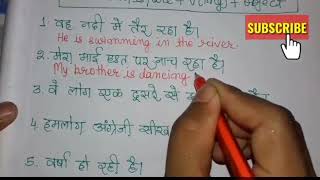 + object
SUBSCRIBE
1. वह नदी में तैर रहा है।
He is swimming in the river.
2. मेरा भाई छत पर नाच रहा है।
My brother is dancing
3. वे लोग एक दूसरे से है।
4. हमलोग अंग्रेजी सीख
5. वर्षा हो रही है।